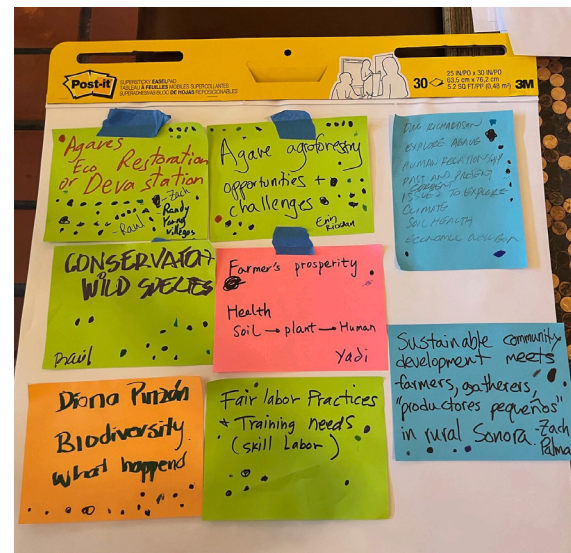 Post-it
SUPERSTICKY EASEL PAD
TABLEAU À FEUILLES MOBILES SUPERCOLLANTES
SUPERADHESIVAS BLOC DE HOJAS REPOSICIONABLES
30
25 IN/PO x 30 IN/PO
63,5 cm x 76,2 cm
5.2 SQ FT/PP (0,48 m²)
3M
Agaves
Eco Restoration
or Devastation
- Zack
Randy
Young
Villegas
- Raul
Agave agroforestry
opportunities +
challenges
Erin
Riordan
RICHARDSON
EXPLORE AGAVE
HUMAN RELATIONSHIP
PAST AND PRESENT
ISSUES TO EXPLORE
CLIMATE
SOIL HEALTH
ECONOMIC
CONSERVATION
WILD SPECIES
Raul
Farmer's prosperity
Health
Soil → plant → Human
Yadi
Sustainable community
development meets
farmers, gatherers,
"productores pequeños"
in rural Sonora.
-Zach
Palma
Diana Pinzón
Biodiversity
what happend
Fair labor Practices
+ Training needs
(skill Labor)